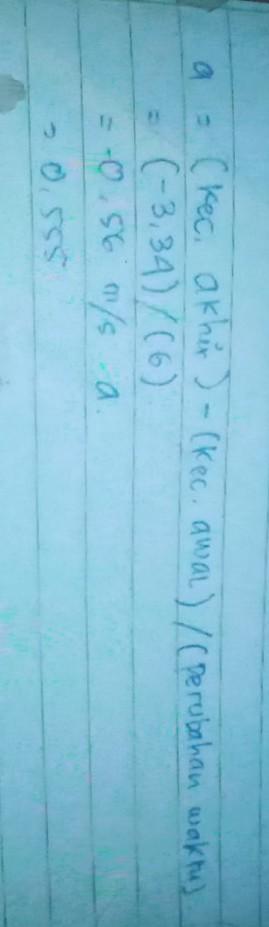 a = (kec. akhir) - (kec. awal) / (perubahan waktu)
= (-3,34) / (6)
= -0,56 m/s a.
= 0,555